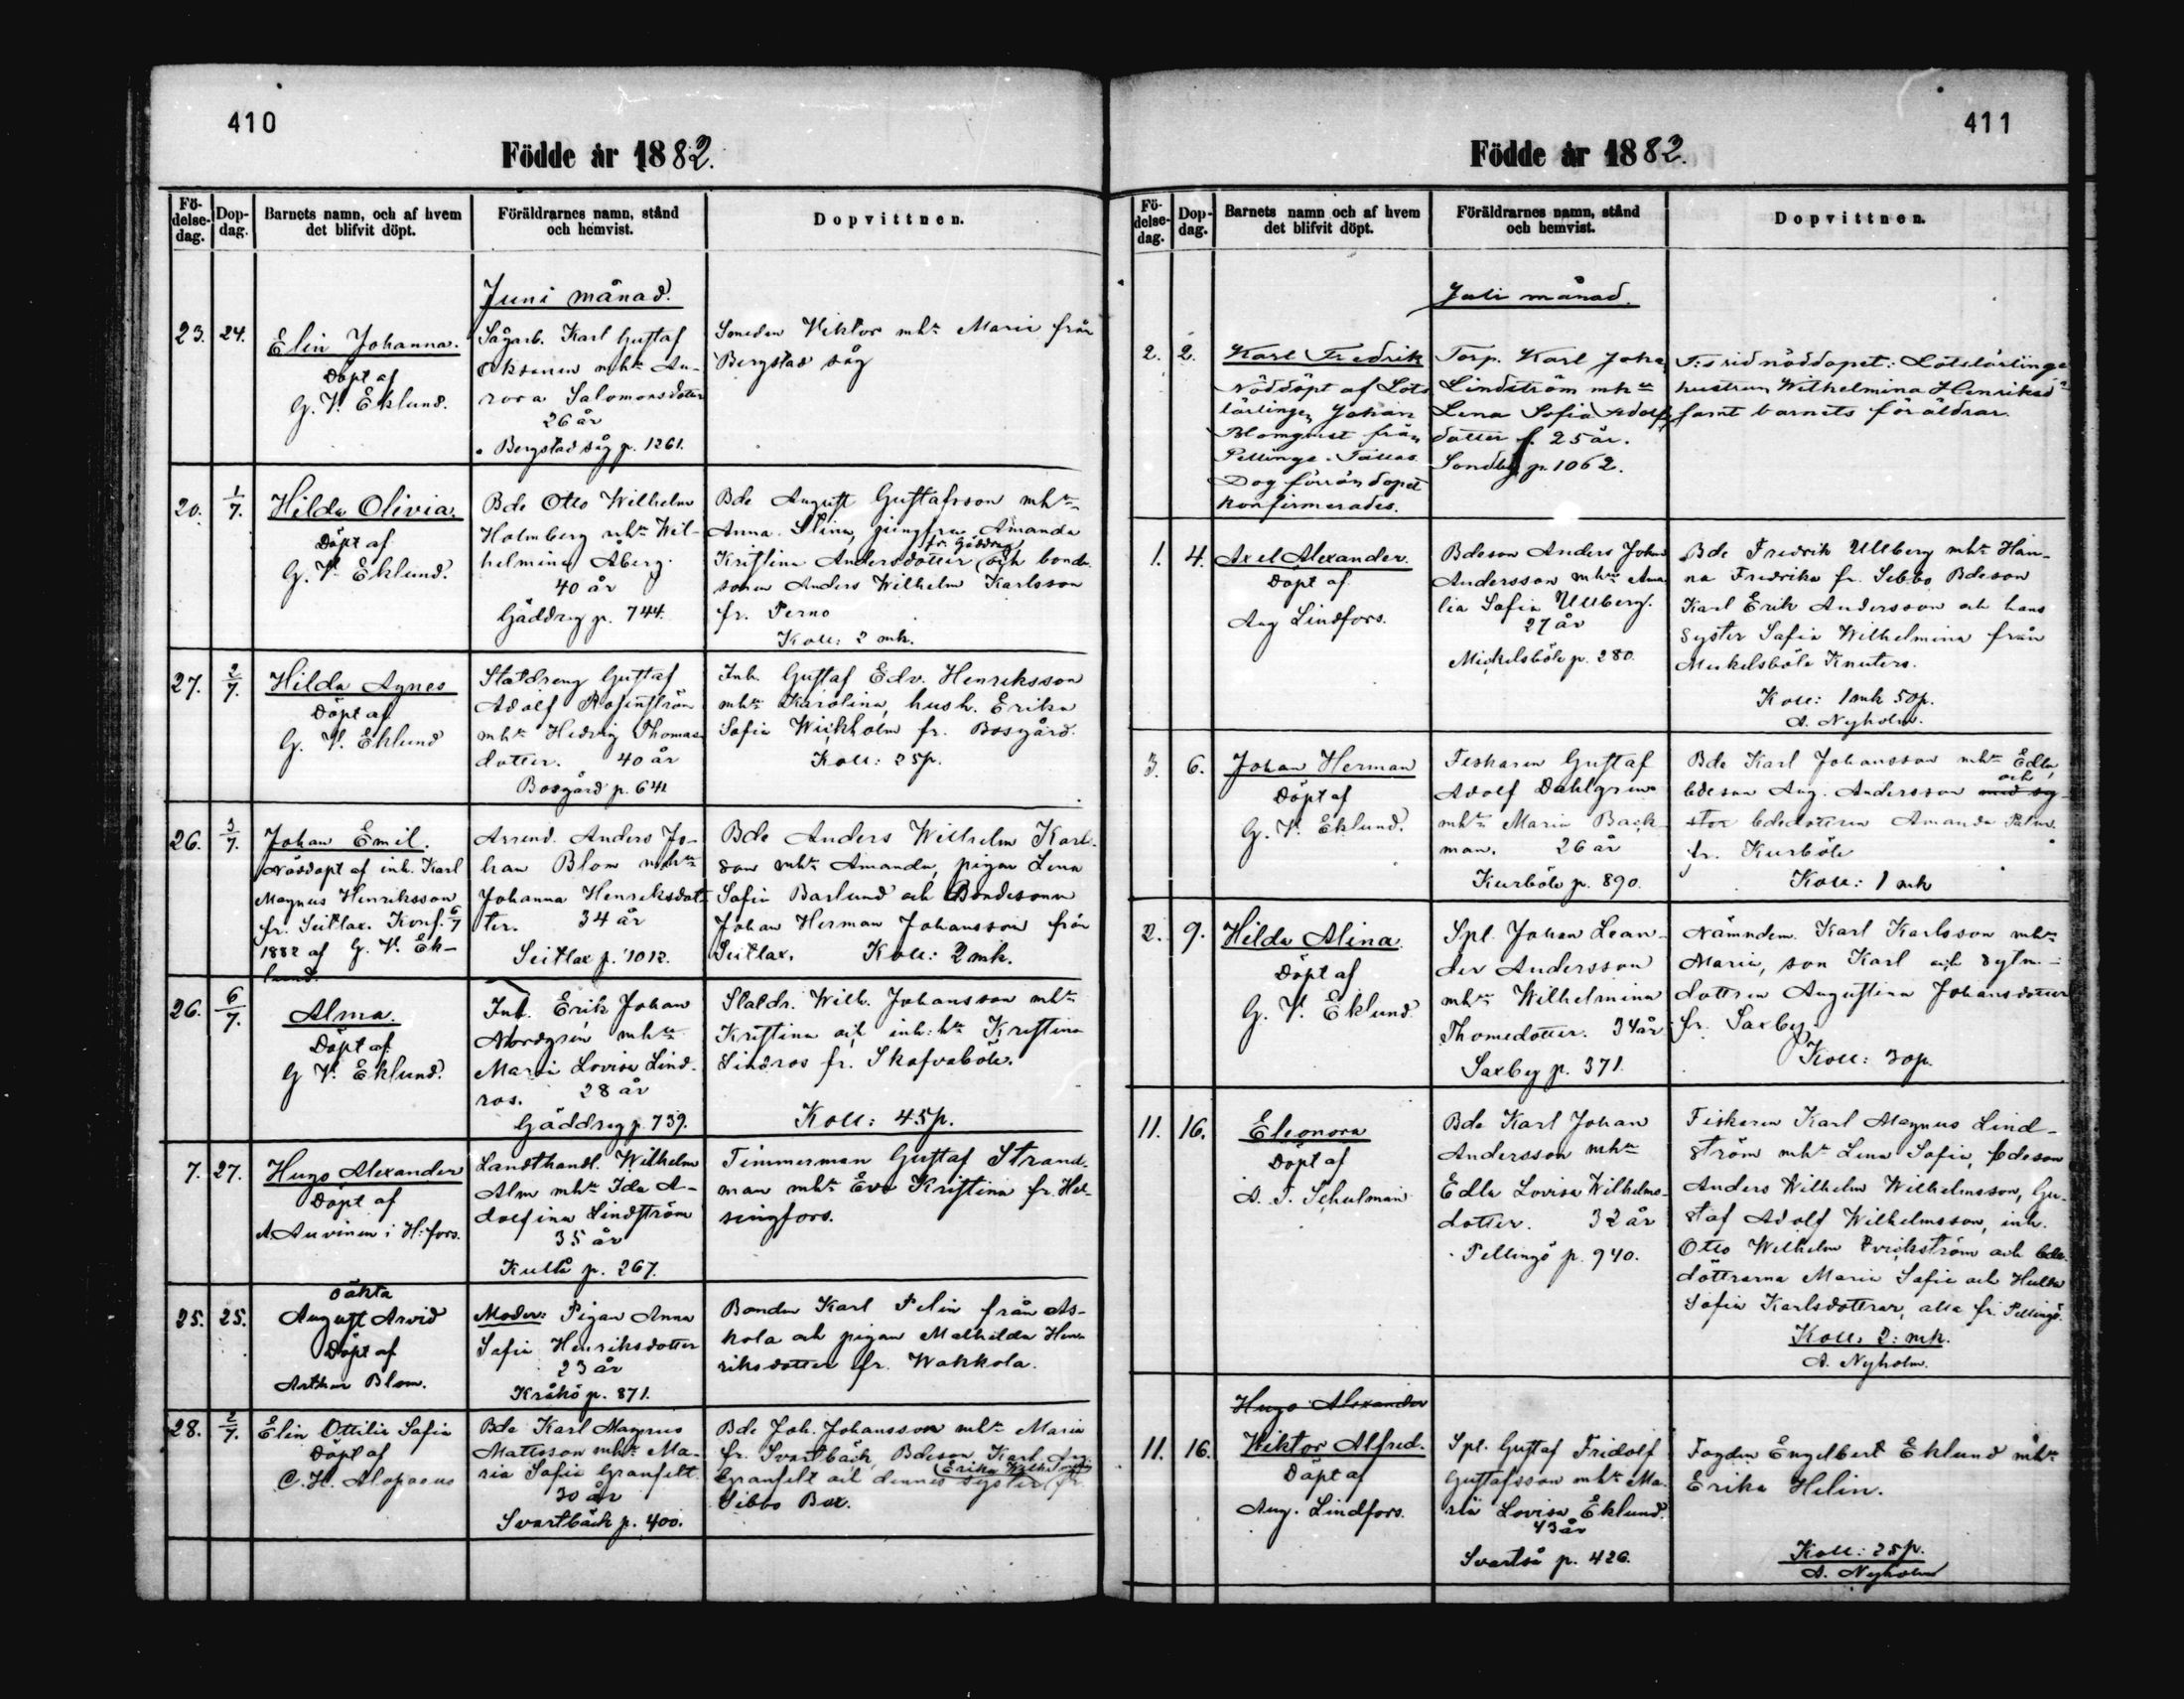 410
Födde år 1882.
Fö-
delse-
dag.
Dop-
dag.
Barnets namn, och af hvem
det blifvit döpt.
Föräldrarnes namn, stånd
och hemvist.
Dopvittnen.
Juni månad.
23. 24.
Elin Johanna.
Döpt af
G. V. Eklund.
Sågarb. Karl Gustaf
Oksanen mhu Au-
rora Salomonsdotter
26 år
Bergstad såg p. 1261.
Smeden Viktor mhu Maria från
Bergstad såg
20. 1/7.
Hilda Olivia.
Döpt af
G. V. Eklund.
Bde Otto Wilhelm
Holmberg mhu Wil-
helmina Åberg.
40 år
Gäddrag p. 744.
Bde August Gustafsson mhu
Anna Stina, jungfrun Amanda
Kristina Andersdotter fr. Gäddrag, och bonde-
sonen Anders Wilhelm Karlsson
fr. Perno
Koll: 2 mk.
27. 2/7.
Hilda Agnes
Döpt af
G. V. Eklund
Statdreng Gustaf
Adolf Rosenström
mhu Hedvig Thomas-
dotter. 40 år
Bosgård p. 641
Inh. Gustaf Edv. Henriksson
mhu Karolina, hush. Erika
Sofia Wickholm fr. Bosgård.
Koll: 25 p.
26. 3/7.
Johan Emil.
Nöddöpt af inh. Karl
Magnus Henriksson
fr. Seitlax. Konf. 6/7
1882 af G. V. Ek-
lund.
Arrend. Anders Jo-
han Blom mhu
Johanna Henriksdot-
ter. 34 år
Seitlax p. 1012.
Bde Anders Wilhelm Karl-
son mhu Amanda, pigan Lena
Sofia Barlund och Bondesonen
Johan Herman Johansson från
Seitlax. Koll: 2 mk.
26. 6/7.
Alma.
Döpt af
G V. Eklund.
Inh. Erik Johan
Nordgrén mhu
Maria Lovisa Lind-
ros. 28 år
Gäddrag p. 739.
Statdr. Wilh. Johansson mhu
Kristina och inh: hu Kristina
Lindros fr. Skafvaböle.
Koll: 45 p.
7. 27.
Hugo Alexander
Döpt af
A. Auvinen i H:fors.
Landthandl. Wilhelm
Alm mhu Ida A-
dolfina Lindström
35 år
Kullå p. 267.
Timmerman Gustaf Strand-
man mhu Eva Kristina fr. Hel-
singfors.
25. 25.
oäkta
August Arvid
Döpt af
Arthur Blom.
Moder: Pigan Anna
Sofia Henriksdotter
23 år
Kråkö p. 871.
Bonden Karl Pelin från As-
kola och pigan Mathilda Hen-
riksdotter fr. Wakkola.
28. 2/7.
Elin Ottilia Sofia
Döpt af
C. H. Alopaeus
Bde Karl Magnus
Mattsson mhu Ma-
ria Sofia Granfelt.
30 år
Svartbäck p. 400.
Bde Joh. Johansson mhu Maria
fr. Svartbäck, Bdeson Karl Aug.
Granfelt och dennes syster fr.
Sibbo Box.
411
Födde år 1882.
Fö-
delse-
dag.
Dop-
dag.
Barnets namn och af hvem
det blifvit döpt.
Föräldrarnes namn, stånd
och hemvist.
Dopvittnen.
Juli månad.
2. 2.
Karl Fredrik
Nöddöpt af Lots
lärlingen Johan
Blomqvist från
Pellinge.
Dog förrän dopet
konfirmerades.
Torp. Karl Joha
Lindström mhu
Lena Sofia Adolfs
dotter f. 25 år.
Sondby p. 1062.
T:s vid nöddopet: Lotslärlings
hustrun Wilhelmina Henriksdr
samt barnets föräldrar.
1. 4.
Axel Alexander.
Döpt af
Aug Lindfors.
Bdeson Anders Johan
Andersson mhu Ama
lia Sofia Ullberg.
27 år
Mickelsböle p. 280.
Bde Fredrik Ullberg mhu Han-
na Fredrika fr. Sebbo Bdeson
Karl Erik Andersson och hans
syster Sofia Wilhelmina från
Mickelsböle Knuters.
Koll: 1 mk 50 p.
A. Nyholm.
3. 6.
Johan Herman
Döpt af
G. V. Eklund.
Fiskaren Gustaf
Adolf Dahlgren
mhu Maria Back-
man. 26 år
Kurböle p. 890.
Bde Karl Johansson mhu Edla,
bdeson Aug. Andersson med sy- och
ster bdedottren Amanda Palm.
fr. Kurböle
Koll: 1 mk
2. 9.
Hilda Alina.
Döpt af
G. V. Eklund.
Spl. Johan Lean-
der Andersson
mhu Wilhelmina
Thomedotter. 34 år
Saxby p. 371.
Nämndem. Karl Karlsson mhu
Maria, son Karl och sytn.-
dottren Augustina Johansdotter
fr. Saxby.
Koll: 30 p.
11. 16.
Eleonora
Döpt af
A. I. Schulman
Bde Karl Johan
Andersson mhu
Edla Lovisa Wilhelms-
dotter. 32 år
Pellinge p. 940.
Fiskaren Karl Magnus Lind-
ström mhu Lena Sofia, bdeson
Anders Wilhelm Wilhelmsson, Gu-
staf Adolf Wilhelmsson, inh.
Otto Wilhelm och bde-
döttrarna Maria Sofia och Hulda
Sofia Karlsdöttrar, alla fr. Pellinge.
Koll: 2: mk.
A. Nyholm.
Hugo Alexander
11. 16.
Wiktor Alfred.
Döpt af
Aug. Lindfors.
Spl. Gustaf Fridolf
Gustafsson mhu Ma-
ria Lovisa Eklund.
43 år
Svartså p. 426.
Fogden Engelbert Eklund mhu
Erika Helin.
Koll: 25 p.
A. Nyholm